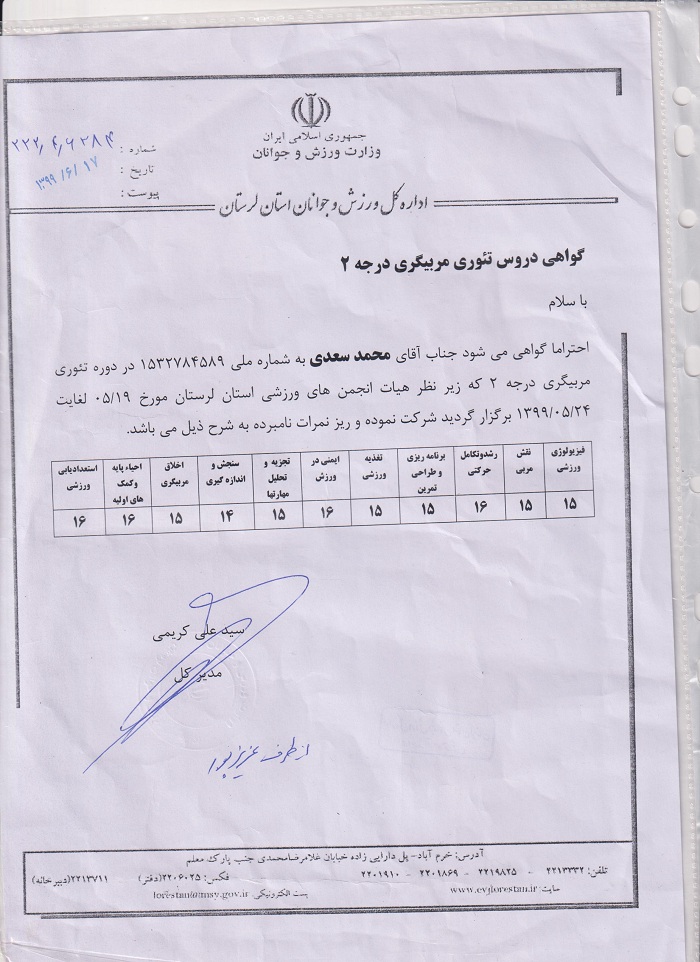 جمهوری اسلامی ایران
وزارت ورزش و جوانان
شماره : ۲۲۲٫ ۴٫ ۶۲۸۴
تاریخ : ۱۳۹۹/۶/۱۷
پیوست :
اداره کل ورزش و جوانان استان لرستان
گواهی دروس تئوری مربیگری درجه ۲
با سلام
احتراما گواهی می شود جناب آقای محمد سعدی به شماره ملی ۱۵۳۲۷۸۴۵۸۹ در دوره تئوری
مربیگری درجه ۲ که زیر نظر هیات انجمن های ورزشی استان لرستان مورخ ۰۵/۱۹ لغایت
۱۳۹۹/۰۵/۲۴ برگزار گردید شرکت نموده و ریز نمرات نامبرده به شرح ذیل می باشد.
فیزیولوژی ورزشی نقش مربی رشدوتکامل حرکتی برنامه ریزی و طراحی تمرین تغذیه ورزشی ایمنی در ورزش تجزیه و تحلیل مهارتها سنجش و اندازه گیری اخلاق مربیگری احیاء پایه وکمک های اولیه استعدادیابی ورزشی
۱۵ ۱۵ ۱۶ ۱۵ ۱۵ ۱۶ ۱۵ ۱۴ ۱۵ ۱۶ ۱۶
سید علی کریمی
مدیر کل
از طرف عزیزپور
آدرس: خرم آباد- پل دارایی زاده خیابان غلامرضامحمدی جنب پارک معلم
تلفن: ۲۲۱۳۳۳۲ - ۲۲۱۹۸۲۵ - ۲۲۰۱۸۶۹ - ۲۲۰۱۹۱۰ فکس: ۲۲۰۶۰۲۵(دفتر) ۲۲۱۳۷۱۱(دبیرخانه)
سایت: www.evjlorestan.ir پست الکترونیکی lorestan@msy.gov.ir